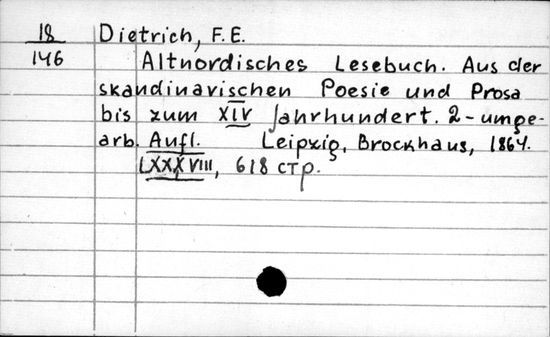 18 Dietrich, F.E.
146 Altnordisches Lesebuch. Aus der
skandinavischen Poesie und Prosa
bis zum XIV Jahrhundert. 2-umge-
arb. Aufl. Leipzig, Brockhaus, 1864.
LXXXVIII, 618 стр.